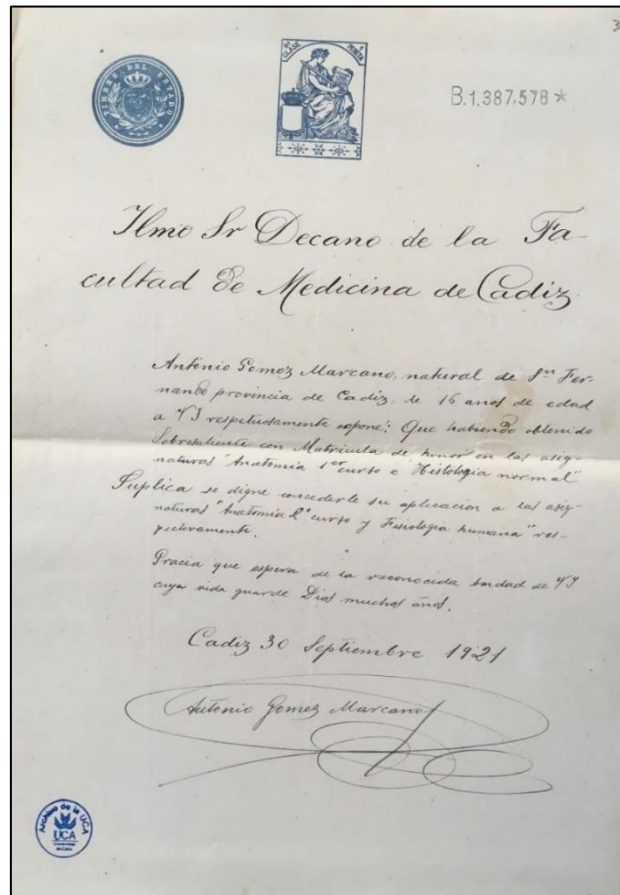 3
TIMBRE DEL ESTADO
B.1.387.578*
Ilmo Sr Decano de la Fa-
cultad de Medicina de Cadiz
Antonio Gomez Marcano, natural de Sn Fer-
nando provincia de Cadiz, de 16 años de edad
a VI respetudamente espone: Que habiendo obtenido
Sobresaliente con Matricula de honor en las asig-
naturas "Anatomia 1er curso e Histologia normal"
Suplica se digne concederle su aplicacion a las asig-
naturas "Anatomia 2º curso y Fisiologia humana" res-
pectivamente.
Gracia que espera de la reconocida bondad de VI
cuya vida guarde Dios muchos años.
Cadiz 30 Septiembre 1921
Antonio Gomez Marcano
Archivo de la UCA
UCA